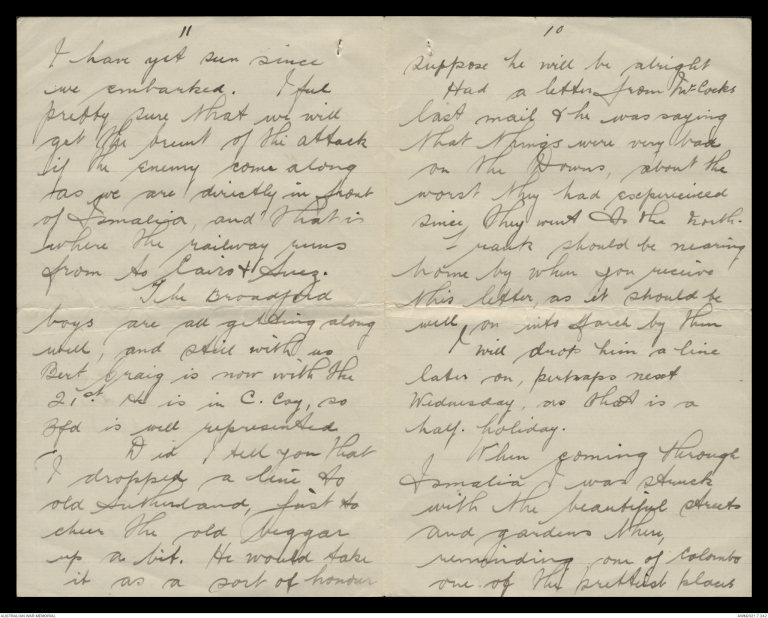 11
I have yet seen since
we embarked. I feel
pretty sure that we will
get the brunt of the attack
if the enemy come along
as we are directly in front
of Ismalia, and that is
where the railway runs
from to Cairo & Suez.
The Broadford
boys are all getting along
well, and still with us
Bert Craig is now with the
21st. He is in C. Coy, so
Bfd is well represented
Did I tell you that
I dropped a line to
old Sutherland, just to
cheer the old beggar
up a bit. He would take
it as a sort of honour
10
suppose he will be alright
Had a letter from Mr Cocks
last mail & he was saying
that things were very bad
on the Downs, about the
worst they had experienced
since they went to the North.
Frank should be nearing
home by when you receive
this letter, as it should be
well on into March by then
I will drop him a line
later on, perhaps next
Wednesday, as that is a
half. holiday.
When coming through
Ismalia I was struck
with the beautiful streets
and gardens there,
reminding one of Colombo
one of the prettiest places
AUSTRALIAN WAR MEMORIAL
AWM2021.7.342